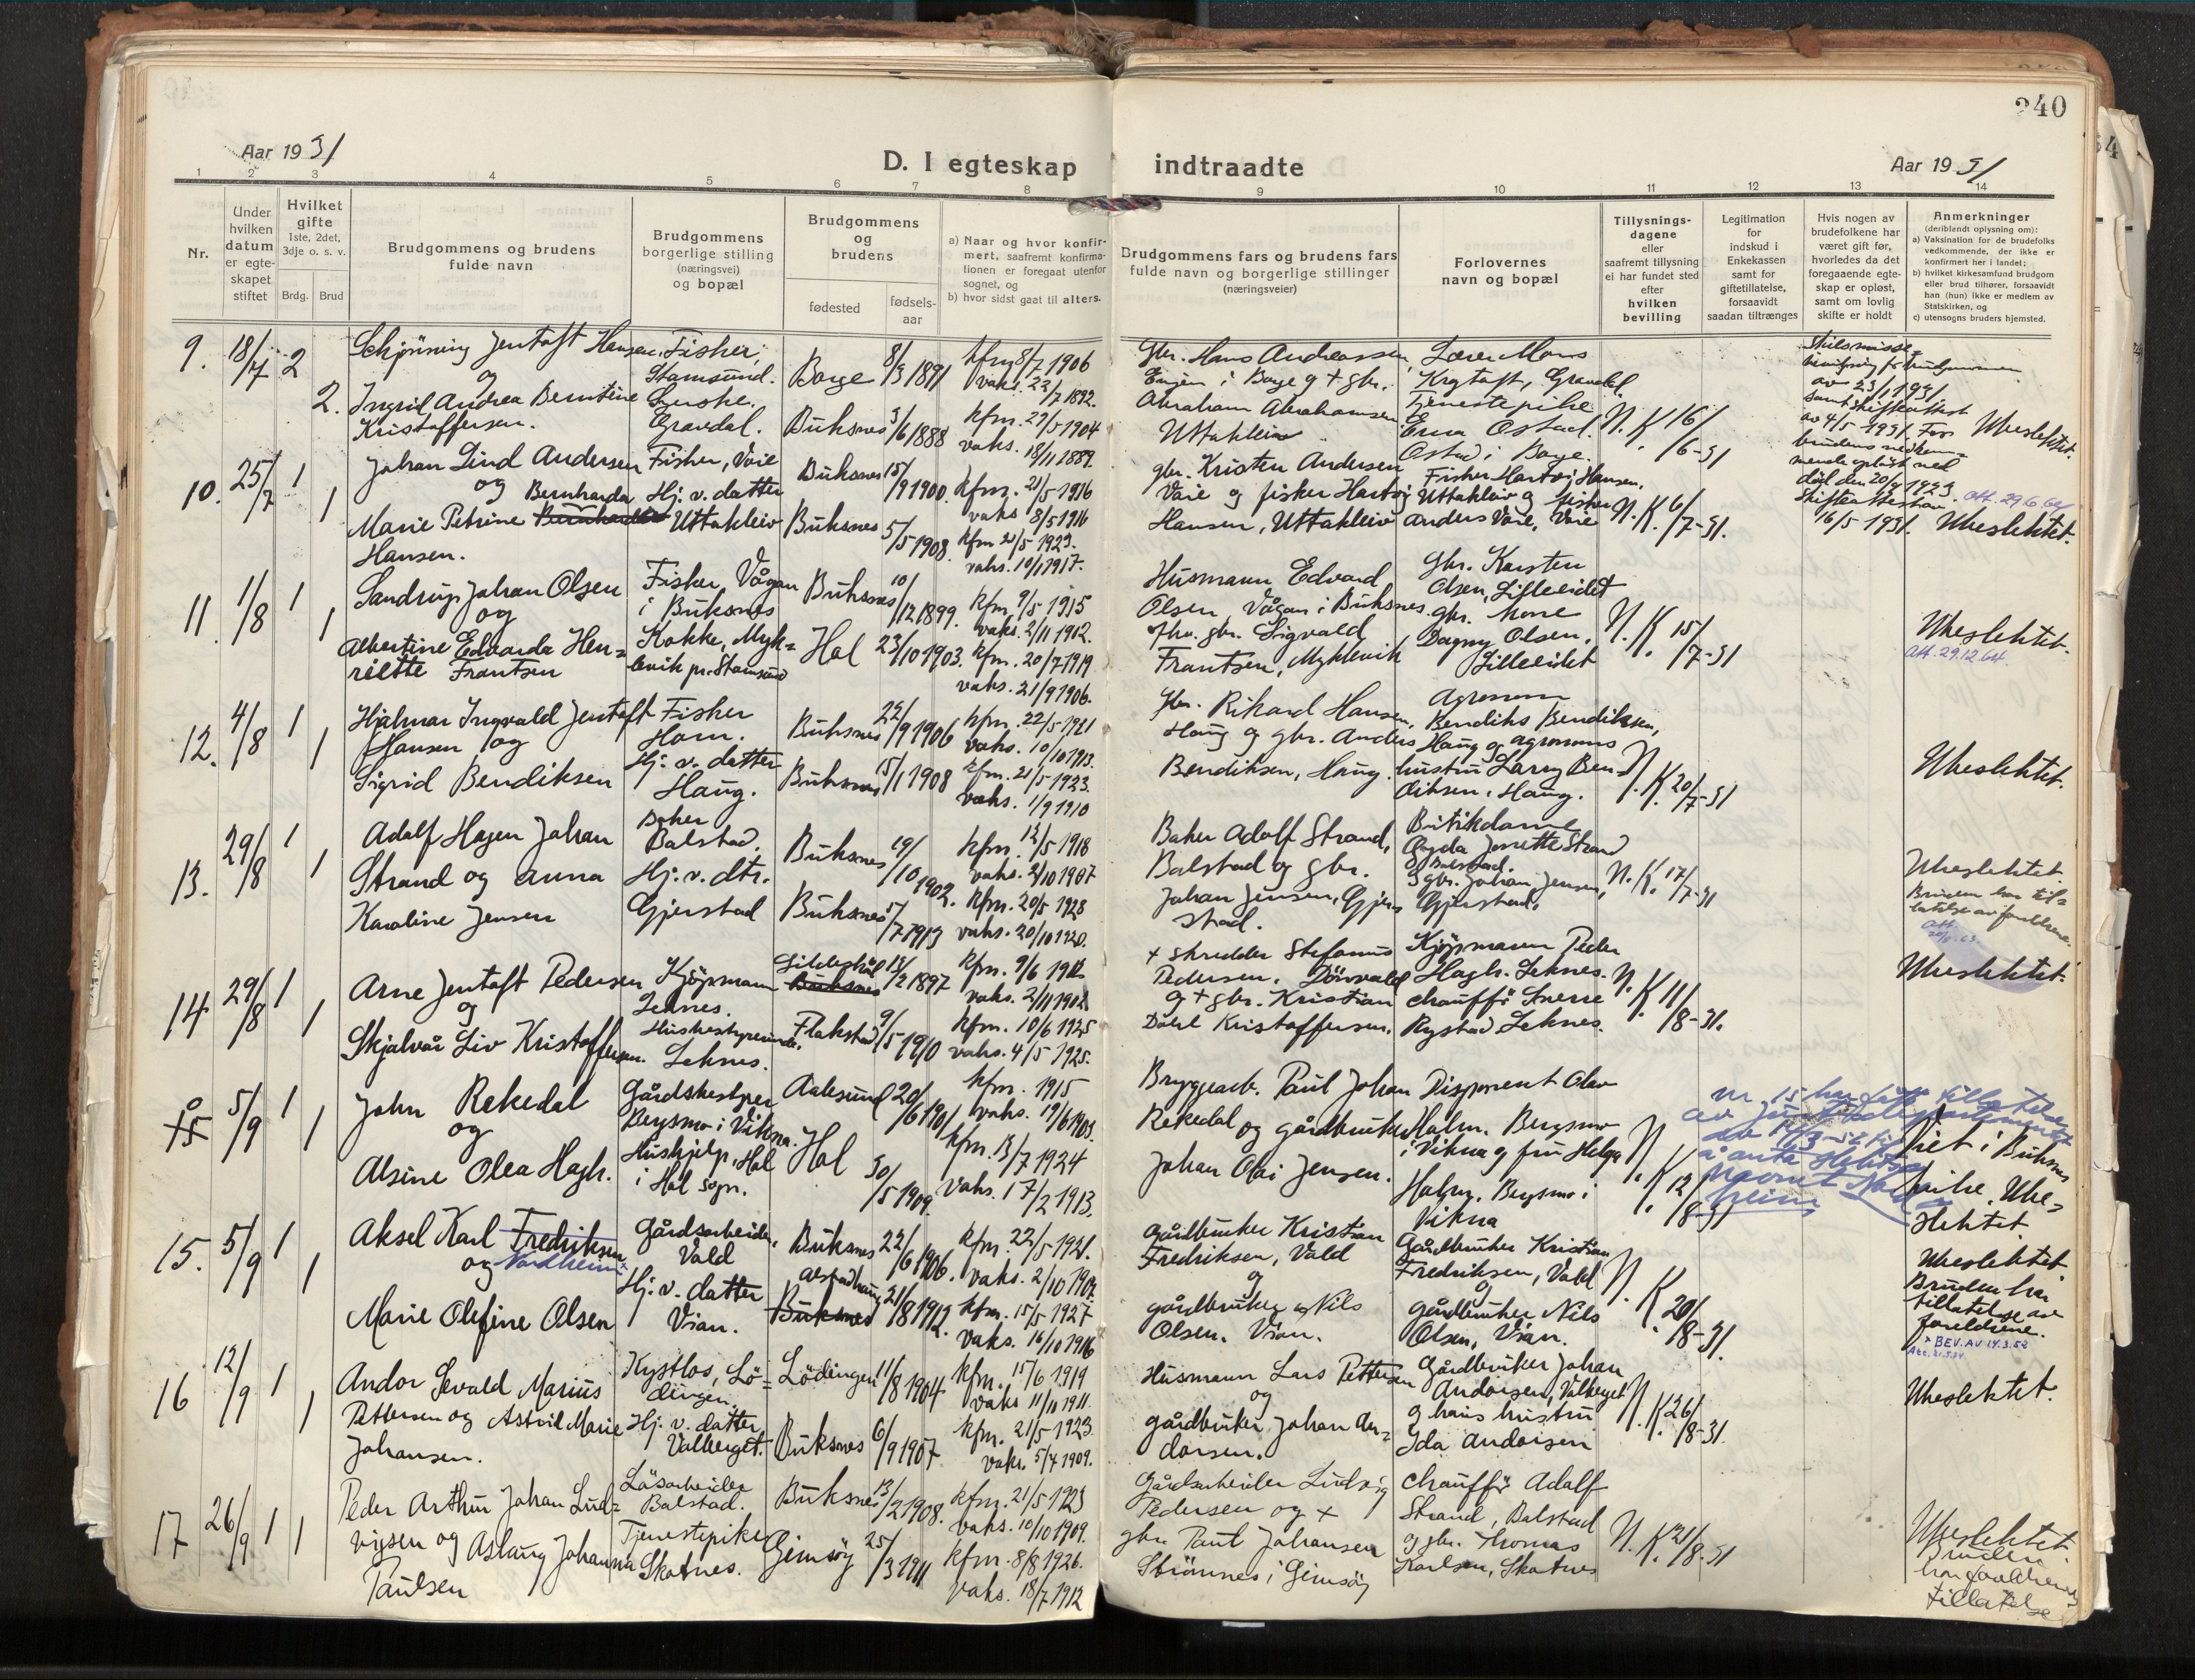 240
Aar 1931
D. I egteskap indtraadte
Aar 1931
1 2 3 4 5 6 7 8 9 10 11 12 13 14
Nr.
Under hvilken datum er egteskapet stiftet
Hvilket gifte 1ste, 2det, 3dje o. s. v.
Brdg. Brud
Brudgommens og brudens fulde navn
Brudgommens borgerlige stilling (næringsvei) og bopæl
Brudgommens og brudens
fødested
fødselsaar
a) Naar og hvor konfirmert, saafremt konfirmationen er foregaat utenfor sognet, og
b) hvor sidst gaat til alters.
Brudgommens fars og brudens fars fulde navn og borgerlige stillinger (næringsveier)
Forlovernes navn og bopæl
Tillysningsdagene eller saafremt tillysning ei har fundet sted efter hvilken bevilling
Legitimation for indskud i Enkekassen samt for giftetillatelse, forsaavidt saadan tiltrænges
Hvis nogen av brudefolkene har været gift før, hvorledes da det foregaaende egteskap er opløst, samt om lovlig skifte er holdt
Anmerkninger
(deriblandt oplysning om):
a) Vaksination for de brudefolks vedkommende, der ikke er konfirmert her i landet;
b) hvilket kirkesamfund brudgom eller brud tilhører, forsaavidt han (hun) ikke er medlem av Statskirken, og
c) utensogns bruders hjemsted.
9. 18/7 2
Schjönning Jentoft Hansen
og
2. Ingrid Andrea Berntine
Kristoffersen.
Fisher,
Stamsund.
Gravdal.
Borge 8/3 1891
Buksnes 3/6 1888
kfm 8/7 1906
vaks. 22/7 1892.
kfm. 29/5 1904
vaks. 18/11 1889.
Gbr. Hans Andreassen
i Borge og + gbr.
Abraham Abrahamsen
Uttakleiv
Lærer Mons
Krogtoft, Gravdal.
Tjenestepike
Erna Ostad.
Ostad i Borge.
N. K. 16/6-31
av 23/1 1931
samt skifteattest
av 4/5 1931. For
brudens vedkom-
mende opløst ved
död den 20/4 1923.
16/5 1931.
Ubeslektet.
10. 25/7 1 1
Johan Lind Andersen
og Bernharda
Marie Petrine
Hansen.
Fisher, Voie
Hj. v. datter
Uttakleiv
Buksnes 15/9 1900.
Buksnes 5/5 1908.
kfm. 21/5 1916
vaks 8/5 1916
kfm 21/5 1923.
vaks. 10/1 1917.
gbr. Kristen Andersen
Voie og fisker Hartvig
Hansen, Uttakleiv
Fisher Hartvig Hansen,
Uttakleiv og fisher
Anders Voie, Voie
N. K. 6/7-31.
Att. 29.6.62
Ubeslektet.
11. 1/8 1 1
Sandrup Johan Olsen
og
Albertine Edvarda Hen=
riette Frantsen
Fisker, Vågan
i Buksnes
Kokke, Myk=
levik pr. Stamsund
Buksnes 10/12 1899.
Hol 23/10 1903.
kfm. 9/5 1915
vaks. 2/11 1902.
kfm. 20/7 1919
vaks. 21/9 1906.
Husmann Edvard
Olsen, Vågan i Buksnes.
fhv. gbr. Sigvald
Frantsen, Myklevik
Gbr. Karsten
Olsen, Lilleeidet
gbr. kone
Dagny Olsen,
Lilleeidet
N. K. 15/7-31
Ubeslektet.
Att. 29.12.64.
12. 4/8 1 1
Hjalmar Ingvald Jentoft
Hansen og
Sigrid Bendiksen
Fisher
Horn.
Hj. v. datter
Haug.
Buksnes 22/9 1906
Buksnes 15/1 1908
kfm. 22/5 1921
vaks. 10/10 1913.
kfm. 21/5 1923.
vaks. 1/9 1910
Gbr. Rikard Hansen,
Haug og gbr. Anders
Bendiksen, Haug.
Agronom
Bendiks Bendiksen,
Haug og agronoms
hustru Larry Ben-
diksen, Haug.
N. K. 20/7-31
Ubeslektet.
13. 29/8 1 1
Adolf Hagen Johan
Strand og Anna
Karoline Jensen
Baker
Balstad.
Hj. v. dtr.
Gjerstad
Buksnes 19/10 1902.
Buksnes 5/7 1913
kfm. 12/5 1918
vaks. 2/10 1907
kfm. 20/5 1928
vaks. 20/10 1920.
Baker Adolf Strand,
Balstad og gbr.
Johan Jensen, Gjer-
stad.
Butikdame
Gyda Jenette Strand
Balstad.
gbr. Johan Jensen,
Gjerstad.
N. K. 17/7-31
Ubeslektet.
Bruden har til=
latelse av foreldrene.
14 29/8 1 1
Arne Jentoft Pedersen
og
Skjalvår Liv Kristoffersen.
Kjöpmann
Leknes.
Husbestyrerinde.
Leknes.
Buksnes 15/2 1897
Flakstad 9/5 1910
kfm. 9/6 1912
vaks. 2/11 1902
kfm. 10/6 1925
vaks. 4/5 1925.
+ skredder Stefanus
Pedersen,
og + gbr. Kristian
Dahl Kristoffersen.
Kjöpmann Peder
Hagh. Leknes.
chaufför Sverre
Rystad Leknes.
N. K. 11/8-31.
Ubeslektet.
15 5/9 1 1
John Rekedal
og
Alsine Olea Hagh.
Gårdsbestyrer
Bergsmo i Vikna.
Hushjelp, Hol
i Hol sogn.
Aalesund 20/6 1901
Hol 30/5 1909.
kfm. 1915
vaks. 19/6 1903.
kfm. 13/7 1924
vaks. 17/2 1913.
Bryggearb. Paul Johan
Rekedal og gårdbruker
Johan Olai Jensen.
Disponent Olav
Holm. Bergsmo
i Vikna og fru Helga
Holm. Bergsmo i
Vikna
N. K. 12/8-31
nr. 15 har fått tillatelse
av Justitsdepartementet
å anta slektsnavnet Nordheim
Viet i Buksnes
kirke. Ube=
slektet.
15. 5/9 1 1
Aksel Karl Fredriksen
og Nordheim x
Marie Olefine Olsen
Gårdsarbeider,
Vold
Hj. v. datter
Vian.
Buksnes 22/6 1906.
Alstadhaug
Buksnes 21/8 1912.
kfm. 22/5 1921.
vaks. 2/10 1907.
kfm. 15/5 1927
vaks. 16/10 1916
Gårdbruker Kristian
Fredriksen, Vold
og
gårdbruker Nils
Olsen, Vian.
Gårdbruker Kristian
Fredriksen, Vold
og
gårdbruker Nils
Olsen, Vian.
N. K. 20/8-31.
Ubeslektet
Bruden har
tillatelse av
foreldrene.
x BEV. AV 14.3.52
16 12/9 1 1
Andor Sevald Marius
Pettersen og Astrid Marie
Johansen.
Kystlos, Lö=
dingen.
Hj. v. datter
Valberget.
Lödingen 11/8 1904
Buksnes 6/9 1907
kfm. 15/6 1919
vaks 11/10 1911.
kfm. 21/5 1923.
vaks. 5/4 1909.
Husmann Lars Pettersen
og
gårdbruker Johan An=
dorsen.
Gårdbruker Johan
Andorsen, Valberget
og hans hustru
Ida Andorsen
N. K. 26/8-31.
Ubeslektet.
17 26/9 1 1
Peder Arthur Johan Lud=
vigsen og Aslaug Johanna
Paulsen
Lösarbeider
Balstad.
Tjenestepike
Skotnes.
Buksnes 13/2 1908.
Gimsöy 25/3 1911
kfm. 21/5 1923
vaks. 10/10 1909.
kfm. 8/8 1926.
vaks. 18/7 1912
Gårdsarbeider Ludvig
Pedersen og +
gbr. Paul Johansen
Strömnes i Gimsöy
Chaufför Adolf
Strand, Balstad
og gbr. Thomas
Karlsen, Skotnes
N. K. 21/8-31
Ubeslektet.
Bruden
har foreldrenes
tillatelse